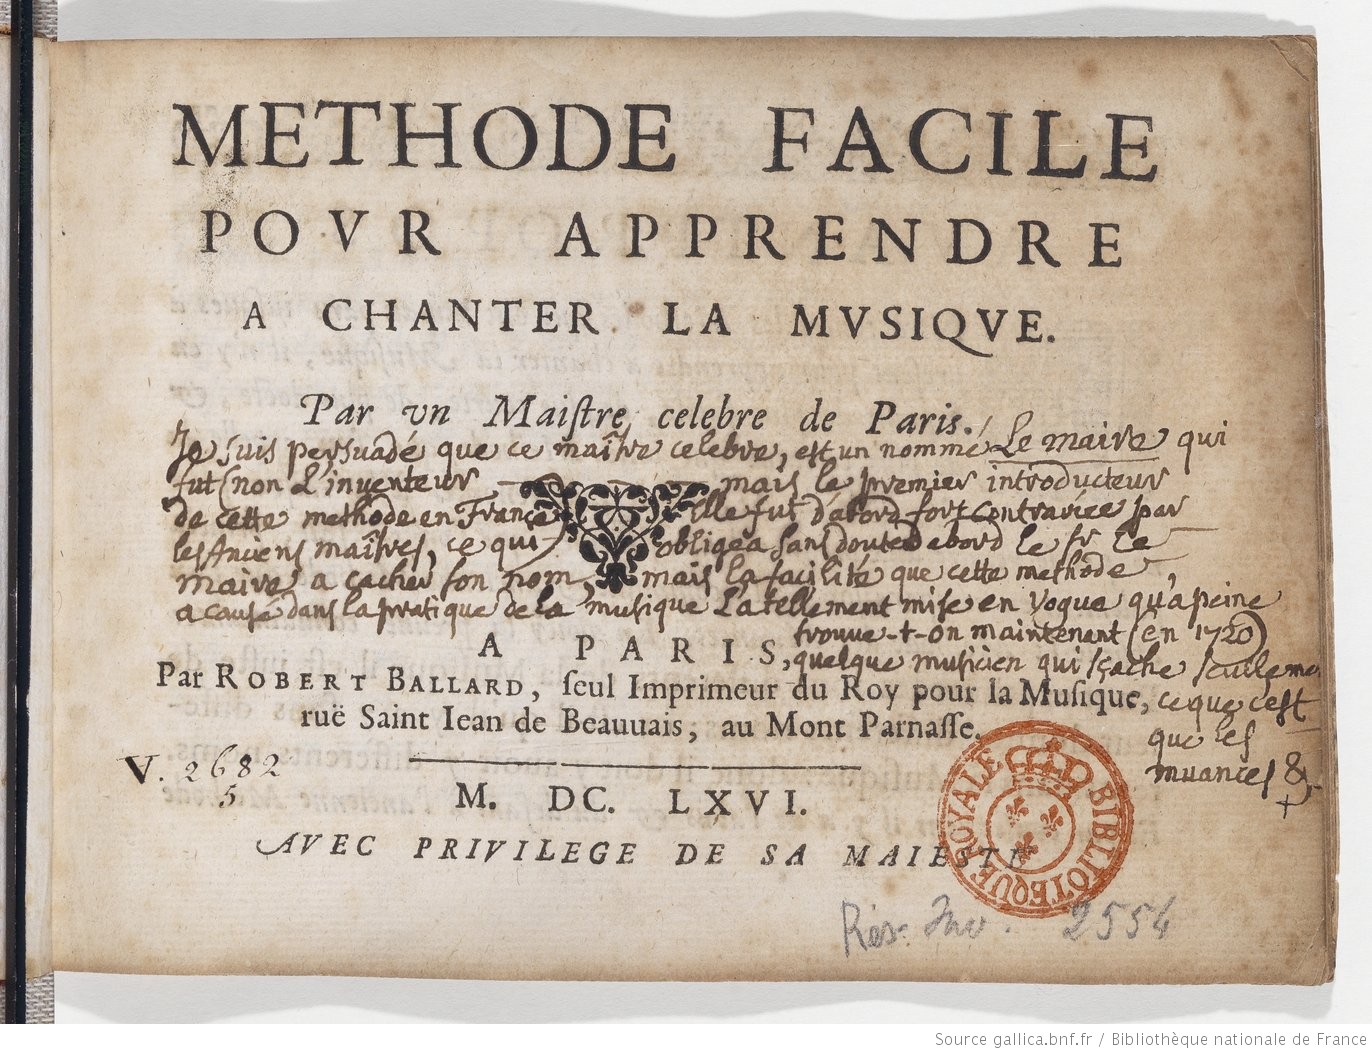 METHODE FACILE
POVR APPRENDRE
A CHANTER LA MVSIQVE.
Par vn Maiſtre celebre de Paris.
Je suis persuadé que ce maître celebre, est un nommé Le maire qui
fut (non L'inventeur mais le premier introducteur
de cette methode en France) Elle fut d'abord fort contrariée par
les Anciens maîtres, ce qui obligea sans doute d'abord le sr Le
maire a cacher son nom, mais la facilité que cette methode,
a causé dans la pratique de la musique L'a tellement mise en vogue qu'a peine
trouve-t-on maintenant (en 1720)
quelque musicien qui sçache seulement
ce que c'est
que les
muances &c
+
A PARIS,
Par ROBERT BALLARD, ſeul Imprimeur du Roy pour la Muſique,
ruë Saint Iean de Beauuais, au Mont Parnaſſe.
V. 2682
5
M. DC. LXVI.
AVEC PRIVILEGE DE SA MAIESTÉ
BIBLIOTEQUE ROYALE
Rés. Inv. 2554
Source gallica.bnf.fr / Bibliothèque nationale de France